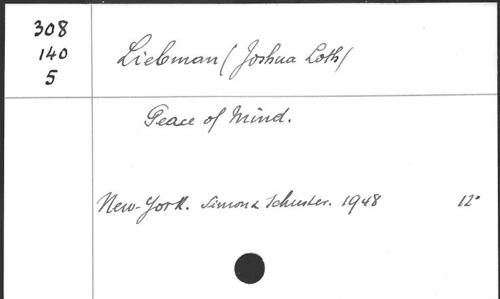 308
140
5
Liebman (Joshua Loth)
Peace of Mind.
New-York. Simon & Schuster. 1948 12°